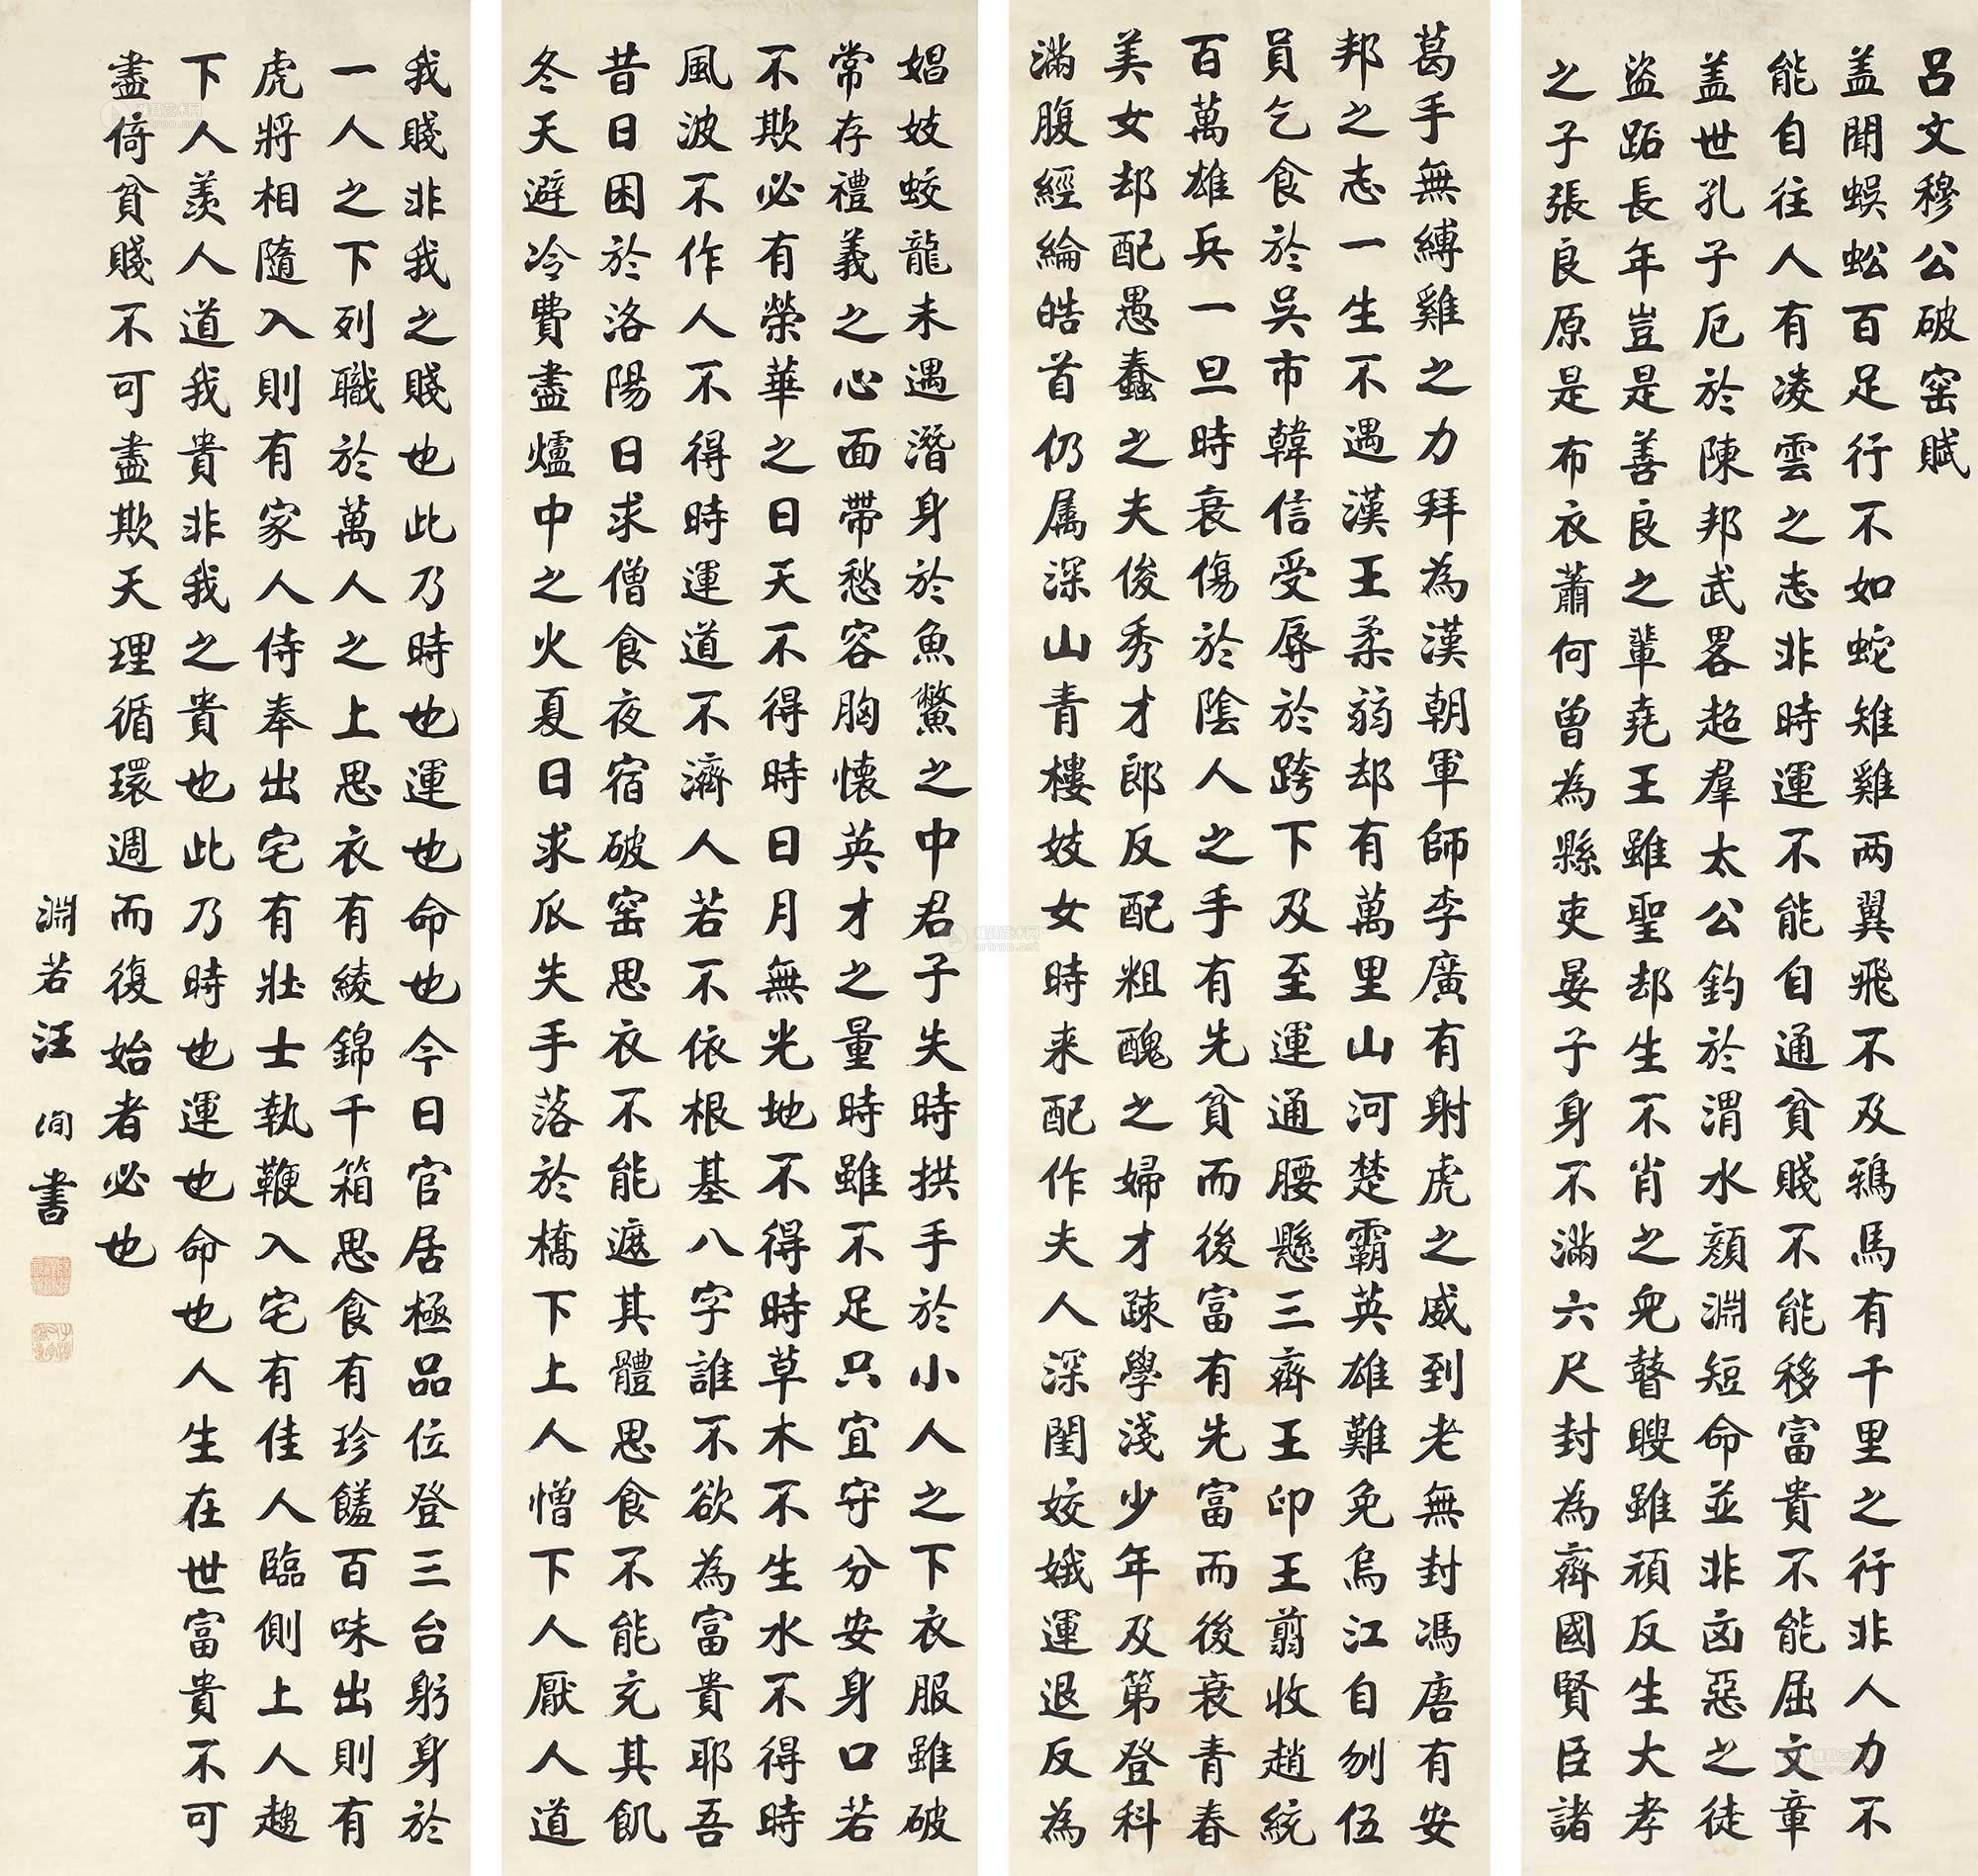 呂文穆公破窑賦
盖聞蜈蚣百足行不如蛇雉雞兩翼飛不及鴉馬有千里之行非人力不
能自往人有凌雲之志非時運不能自通貧賤不能移富貴不能屈文章
盖世孔子厄於陳邦武畧超羣太公釣於渭水顏淵短命並非凶惡之徒
盜跖長年豈是善良之輩堯王雖聖却生不肖之兒瞽瞍雖頑反生大孝
之子張良原是布衣蕭何曾為縣吏晏子身不滿六尺封為齊國賢臣諸
葛手無縛雞之力拜為漢朝軍師李廣有射虎之威到老無封馮唐有安
邦之志一生不遇漢王柔弱却有萬里山河楚霸英雄難免烏江自刎伍
員乞食於吳市韓信受辱於跨下及至運通腰懸三齊王印王翦收趙統
百萬雄兵一旦時衰傷於陰人之手有先貧而後富有先富而後衰青春
美女却配愚蠢之夫俊秀才郎反配粗醜之婦才疎學淺少年及第登科
滿腹經綸皓首仍属深山青樓妓女時来配作夫人深閨姣娥運退反為
娼妓蛟龍未遇潛身於魚鱉之中君子失時拱手於小人之下衣服雖破
常存禮義之心面帶愁容胸懷英才之量時雖不足只宜守分安身口若
不欺必有榮華之日天不得時日月無光地不得時草木不生水不得時
風波不作人不得時運道不濟人若不依根基八字誰不欲為富貴耶吾
昔日困於洛陽日求僧食夜宿破窑思衣不能遮其體思食不能充其飢
冬天避冷費盡爐中之火夏日求瓜失手落於橋下上人憎下人厭人道
我賤非我之賤也此乃時也運也命也今日官居極品位登三台躬身於
一人之下列職於萬人之上思衣有綾錦千箱思食有珍饈百味出則有
虎將相隨入則有家人侍奉出宅有壯士執鞭入宅有佳人臨側上人趨
下人羨人道我貴非我之貴也此乃時也運也命也人生在世富貴不可
盡倚貧賤不可盡欺天理循環週而復始者必也
淵若汪洵書